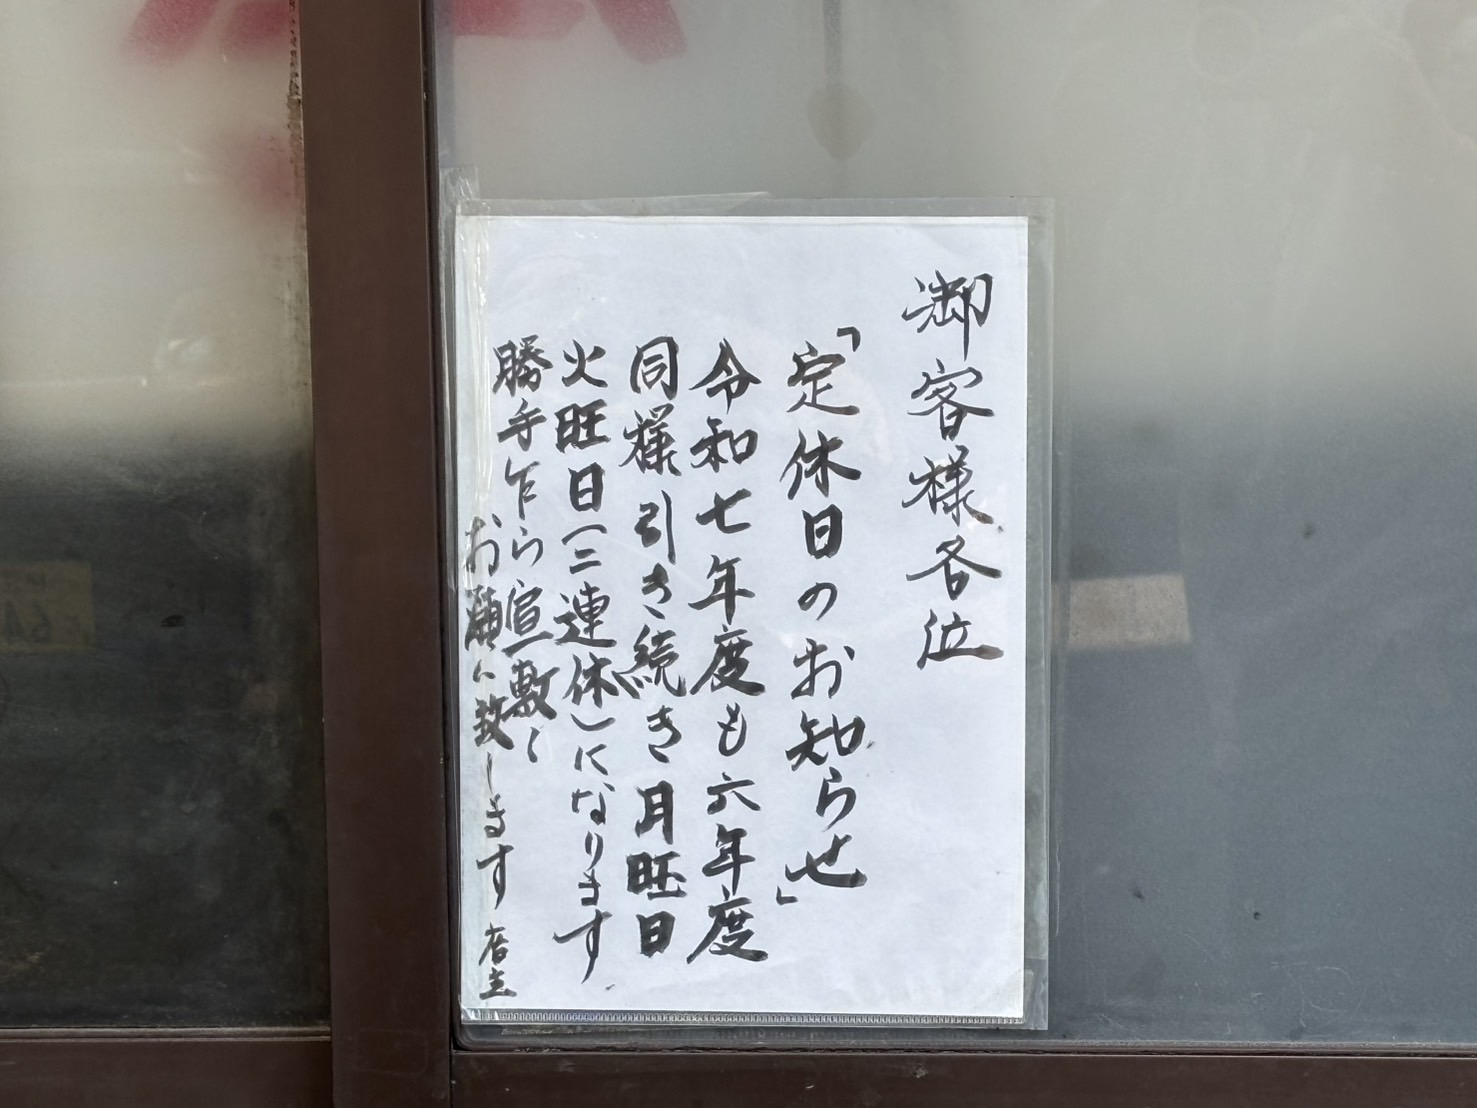 御客様各位
「定休日のお知らせ」
令和七年度も六年度
同様引き続き月旺日
火旺日(二連休)になります
勝手乍ら宜敷く
お願い致します 店主
64